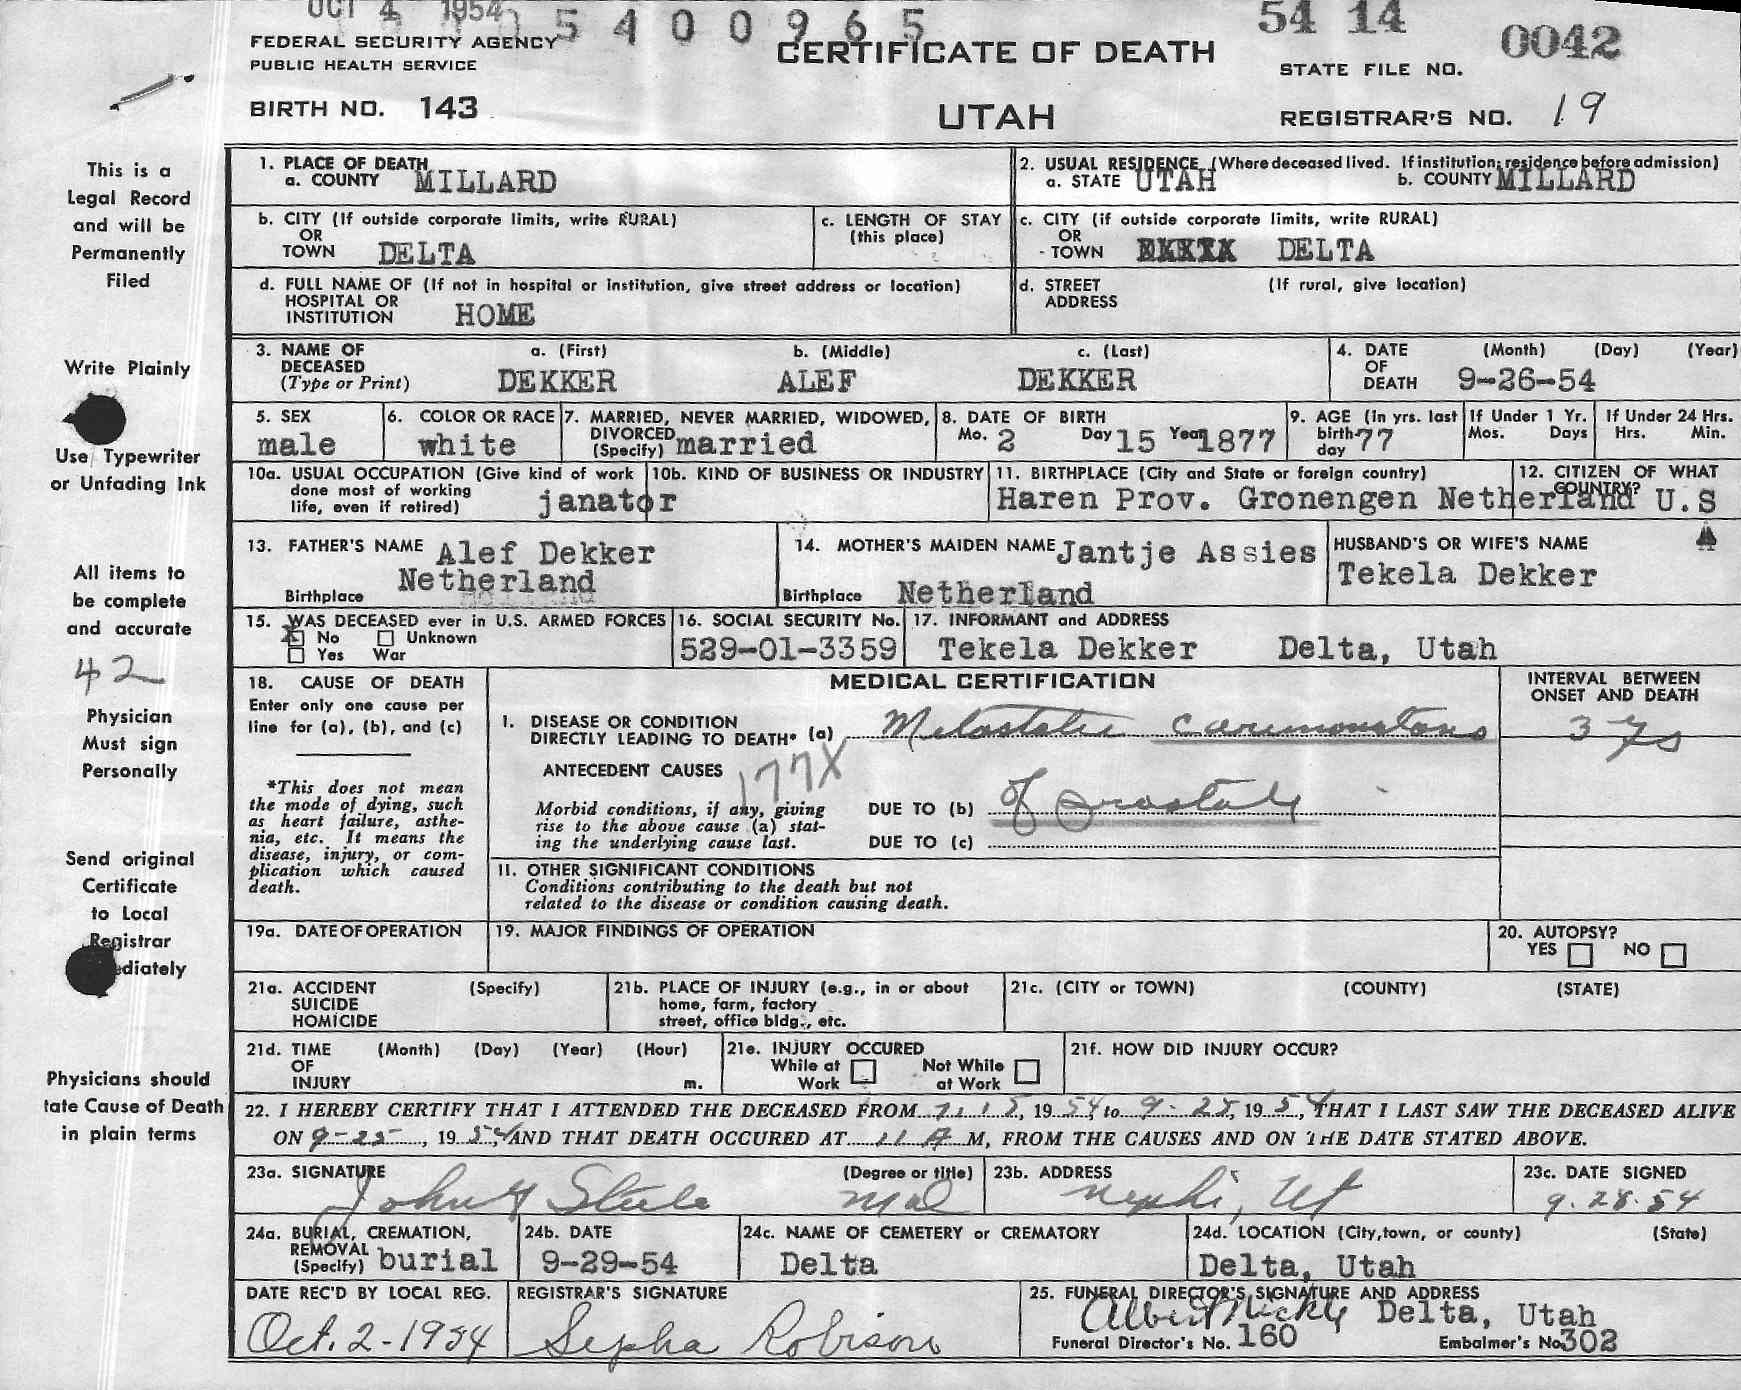 OCT 4 1954
5400965
54 14
0042
FEDERAL SECURITY AGENCY
PUBLIC HEALTH SERVICE
CERTIFICATE OF DEATH
STATE FILE NO.
BIRTH NO. 143
UTAH
REGISTRAR'S NO. 19
This is a
Legal Record
and will be
Permanently
Filed
Write Plainly
Use Typewriter
or Unfading Ink
All items to
be complete
and accurate
42
Physician
Must sign
Personally
Send original
Certificate
to Local
Registrar
ediately
Physicians should
tate Cause of Death
in plain terms
1. PLACE OF DEATH
a. COUNTY MILLARD
2. USUAL RESIDENCE (Where deceased lived. If institution; residence before admission)
a. STATE UTAH b. COUNTY MILLARD
b. CITY (If outside corporate limits, write RURAL)
OR
TOWN DELTA
c. LENGTH OF STAY
(this place)
c. CITY (if outside corporate limits, write RURAL)
OR
TOWN DELTA
d. FULL NAME OF (If not in hospital or institution, give street address or location)
HOSPITAL OR
INSTITUTION HOME
d. STREET (If rural, give location)
ADDRESS
3. NAME OF DECEASED (Type or Print)
a. (First) b. (Middle) c. (Last)
DEKKER ALEF DEKKER
4. DATE OF DEATH (Month) (Day) (Year)
9-26-54
5. SEX
male
6. COLOR OR RACE
white
7. MARRIED, NEVER MARRIED, WIDOWED,
DIVORCED (Specify) married
8. DATE OF BIRTH
Mo. 2 Day 15 Year 1877
9. AGE (In yrs. last
birth-day 77
If Under 1 Yr.
Mos. Days
If Under 24 Hrs.
Hrs. Min.
10a. USUAL OCCUPATION (Give kind of work
done most of working
life, even if retired) janator
10b. KIND OF BUSINESS OR INDUSTRY
11. BIRTHPLACE (City and State or foreign country)
Haren Prov. Gronengen Netherland
12. CITIZEN OF WHAT
COUNTRY? U.S
A
13. FATHER'S NAME Alef Dekker
Birthplace Netherland
14. MOTHER'S MAIDEN NAME Jantje Assies
Birthplace Netherland
HUSBAND'S OR WIFE'S NAME
Tekela Dekker
15. WAS DECEASED ever in U.S. ARMED FORCES
X No Unknown
Yes War
16. SOCIAL SECURITY No.
529-01-3359
17. INFORMANT and ADDRESS
Tekela Dekker Delta, Utah
18. CAUSE OF DEATH
Enter only one cause per
line for (a), (b), and (c)
*This does not mean
the mode of dying, such
as heart failure, asthe-
nia, etc. It means the
disease, injury, or com-
plication which caused
death.
MEDICAL CERTIFICATION
INTERVAL BETWEEN
ONSET AND DEATH
I. DISEASE OR CONDITION
DIRECTLY LEADING TO DEATH* (a) Metastatic carcinomatous
3 ys
ANTECEDENT CAUSES
177X
Morbid conditions, if any, giving
rise to the above cause (a) stat-
ing the underlying cause last.
DUE TO (b) of prostate
DUE TO (c)
II. OTHER SIGNIFICANT CONDITIONS
Conditions contributing to the death but not
related to the disease or condition causing death.
19a. DATE OF OPERATION
19. MAJOR FINDINGS OF OPERATION
20. AUTOPSY?
YES NO
21a. ACCIDENT (Specify)
SUICIDE
HOMICIDE
21b. PLACE OF INJURY (e.g., in or about
home, farm, factory
street, office bldg., etc.
21c. (CITY or TOWN) (COUNTY) (STATE)
21d. TIME (Month) (Day) (Year) (Hour)
OF
INJURY m.
21e. INJURY OCCURED
While at Work Not While at Work
21f. HOW DID INJURY OCCUR?
22. I HEREBY CERTIFY THAT I ATTENDED THE DECEASED FROM 1954 to 9-25, 1954, THAT I LAST SAW THE DECEASED ALIVE
ON 9-25, 1954 AND THAT DEATH OCCURED AT 11 A M, FROM THE CAUSES AND ON THE DATE STATED ABOVE.
23a. SIGNATURE (Degree or title)
John Steele MD
23b. ADDRESS
Nephi, Ut
23c. DATE SIGNED
9-28-54
24a. BURIAL, CREMATION,
REMOVAL
(Specify) burial
24b. DATE
9-29-54
24c. NAME OF CEMETERY or CREMATORY
Delta
24d. LOCATION (City, town, or county) (State)
Delta, Utah
DATE REC'D BY LOCAL REG.
Oct. 2-1954
REGISTRAR'S SIGNATURE
Sepha Robison
25. FUNERAL DIRECTOR'S SIGNATURE AND ADDRESS
Delta, Utah
Funeral Director's No. 160 Embalmer's No. 302